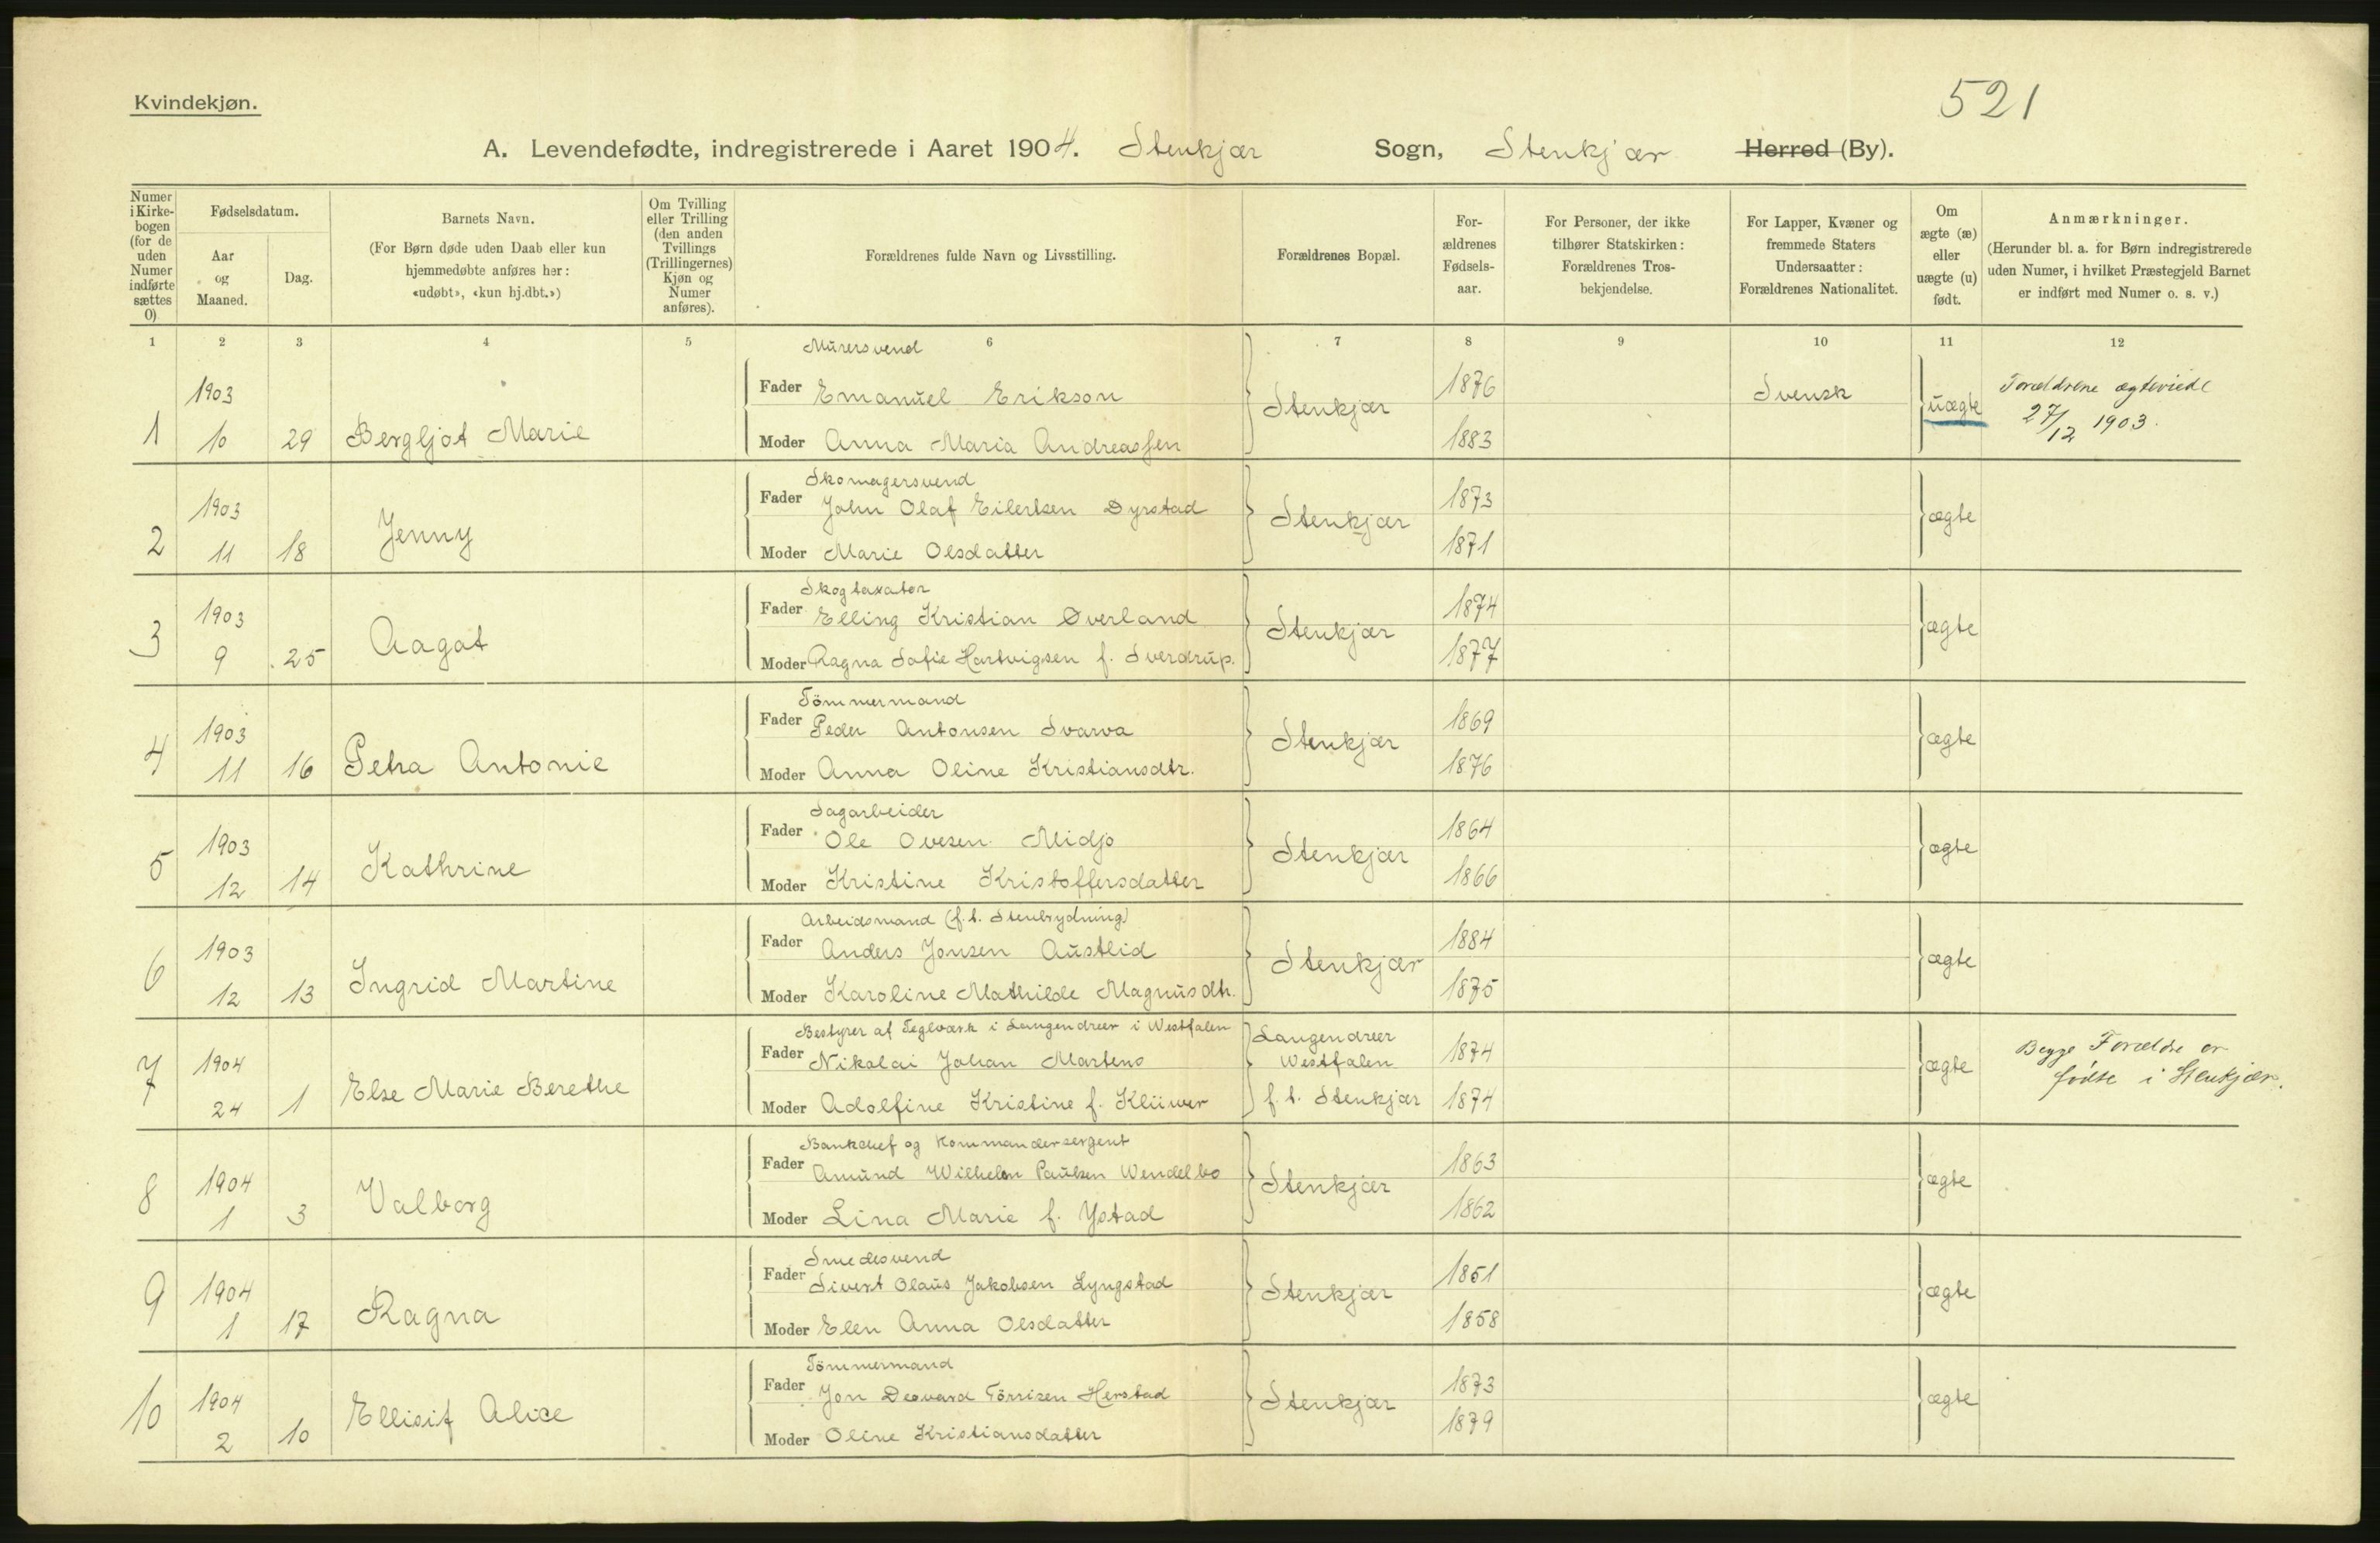 Kvindekjøn.
521
A. Levendefødte, indregistrerede i Aaret 1904. Stenkjær Sogn, Stenkjær Herred (By).
Numer i Kirkebogen (for de uden Numer indførte sættes 0)
Fødselsdatum.
Aar og Maaned.
Dag.
Barnets Navn.
(For Børn døde uden Daab eller kun hjemmedøbte anføres her: «udøbt», «kun hj.dbt.»)
Om Tvilling eller Trilling (den anden Tvillings (Trillingernes) Kjøn og Numer anføres).
Forældrenes fulde Navn og Livsstilling.
Forældrenes Bopæl.
Forældrenes Fødselsaar.
For Personer, der ikke tilhører Statskirken: Forældrenes Trosbekjendelse.
For Lapper, Kvæner og fremmede Staters Undersaatter: Forældrenes Nationalitet.
Om ægte (æ) eller uægte (u) født.
Anmærkninger.
(Herunder bl. a. for Børn indregistrerede uden Numer, i hvilket Præstegjeld Barnet er indført med Numer o. s. v.)
1 2 3 4 5 6 7 8 9 10 11 12
Murersvend
1903 Fader Emanuel Erikson Stenkjær 1876 Svensk uægte Forældrene ægteviede
1 10 29 Bergljot Marie Moder Anna Maria Andreassen 1883 27/12 1903.
Skomagersvend
1903 Fader John Olaf Eilertsen Dyrstad Stenkjær 1873 ægte
2 11 18 Jenny Moder Marie Olsdatter 1871
Skogtaxator
1903 Fader Elling Kristian Øverland Stenkjær 1874 ægte
3 9 25 Aagot Moder Ragna Sofie Hartvigsen f. Sverdrup. 1877
Tömmermand
1903 Fader Peder Antonsen Svarva Stenkjær 1869 ægte
4 11 16 Petra Antonie Moder Anna Oline Kristiansdtr. 1876
Sagarbeider
1903 Fader Ole Ovesen Midjo Stenkjær 1864 ægte
5 12 14 Kathrine Moder Kristine Kristoffersdatter 1866
Arbeidsmand (f. t. Stenbrydning)
1903 Fader Anders Jonsen Austlid Stenkjær 1884 ægte
6 12 13 Ingrid Martine Moder Karoline Mathilde Magnusdtr. 1875
Bestyrer af Teglværk i Langendreer i Westfalen
1904 Fader Nikolai Johan Martens Langendreer Westfalen 1874 ægte Begge Forældre er
7 24 1 Else Marie Berethe Moder Adolfine Kristine f. Klüwer f. t. Stenkjær 1874 fødte i Stenkjær.
Bankchef og Kommandersergent
1904 Fader Amund Wilhelm Paulsen Wendelbo Stenkjær 1863 ægte
8 1 3 Valborg Moder Lina Marie f. Ystad 1862
Smedesvend
1904 Fader Sivert Olaus Jakobsen Lyngstad Stenkjær 1851 ægte
9 1 17 Ragna Moder Elen Anna Olsdatter 1858
Tömmermand
1904 Fader Jon Desvard Törrisen Herstad Stenkjær 1873 ægte
10 2 10 Ellisif Alice Moder Oline Kristiansdatter 1879